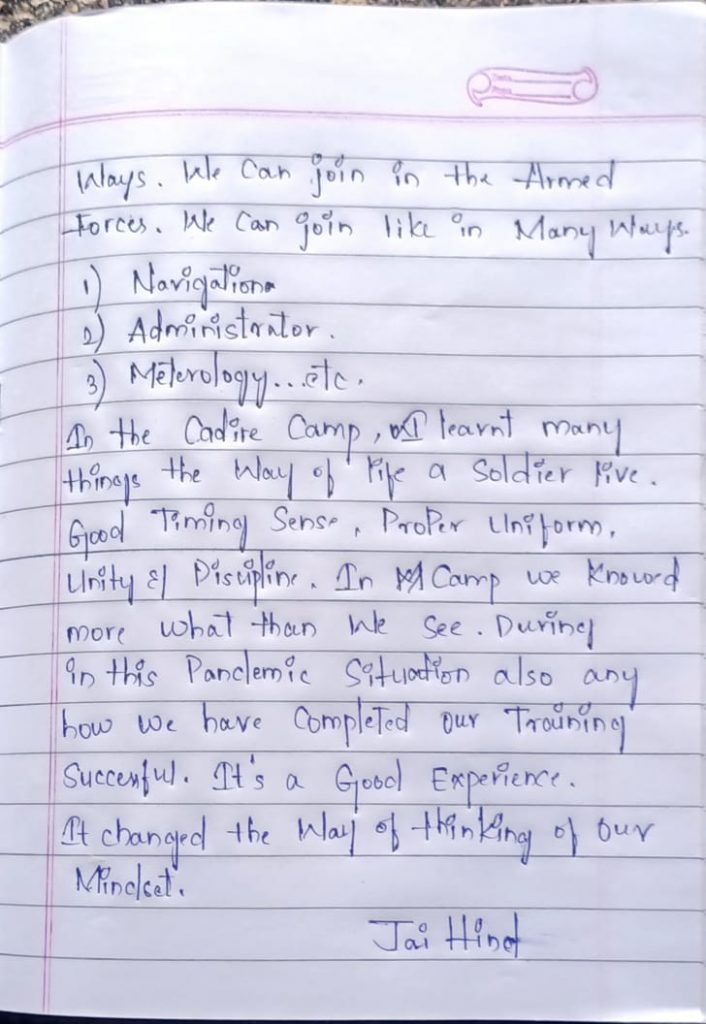 Ways. We Can join in the Armed
Forces. We Can join like in Many Ways.
1) Navigation
2) Administrator.
3) Meterology...etc.
In the Cadire Camp, I learnt many
things the Way of life a Soldier live.
Good Timing Sense, Proper Uniform,
Unity & Discipline. In Camp we Knowed
more what than We See. During
in this Pandemic Situation also any
how we have Completed our Training
Successful. It's a Good Experience.
It changed the Way of thinking of our
Mindset.
Jai Hind